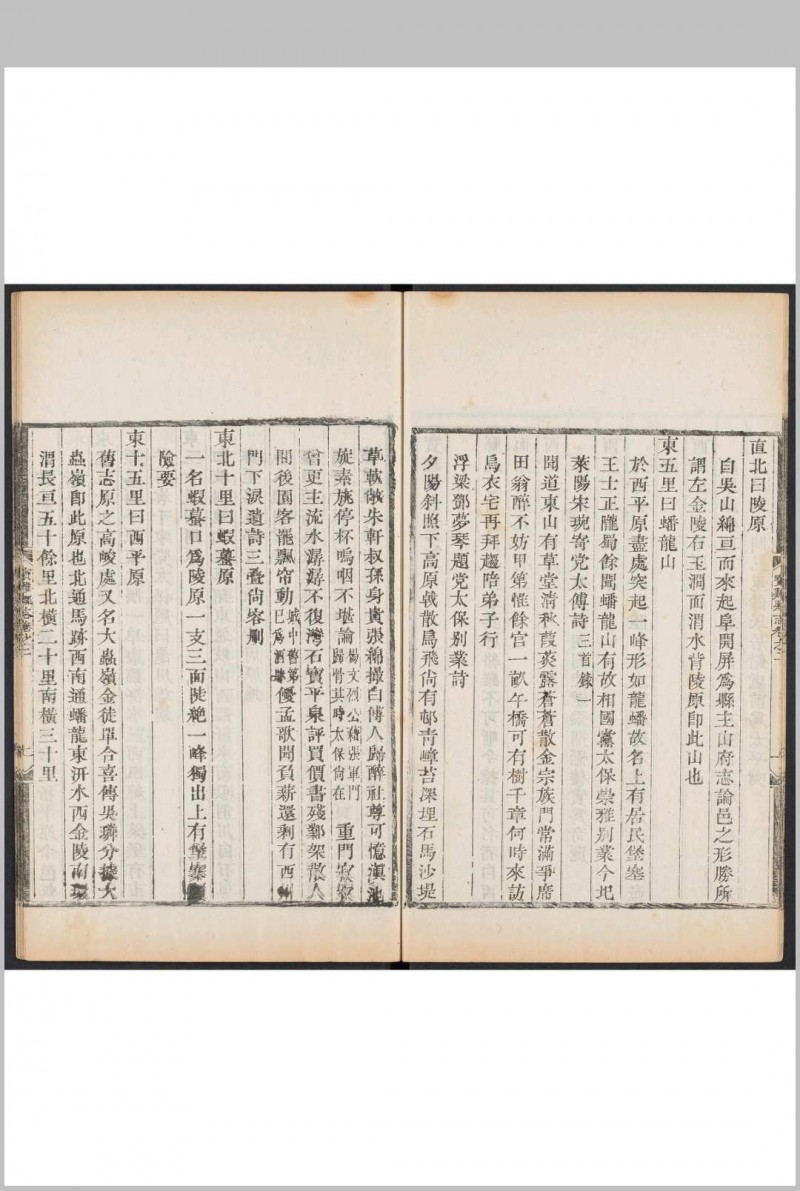 直北曰陵原
自吳山綿亘而來起阜開屏爲縣主山府志論邑之形勝所
謂左金陵右玉澗面渭水背陵原卽此山也
東五里曰蟠龍山
於西平原盡處突起一峰形如龍蟠故名上有居民堡塞
王士正隴蜀餘聞蟠龍山有故相國黨太保崇雅別業今圯
萊陽宋琬寄党太傅詩三首錄一
聞道東山有草堂淸秋葭菼露蒼蒼散金宗族門常滿爭席
田翁醉不妨甲第惟餘宮一畝午橋可有樹千章何時來訪
烏衣宅再拜趨陪弟子行
浮梁鄧夢琴題党太保别業詩
夕陽斜照下高原戟散鳥飛尙有邨靑嶂苔深埋石馬沙堤
草軟散朱軒叔孫身賁張綿蕞白傅人歸醉社尊可憶滇池
旋素旐停杯嗚咽不堪論楊文烈公藉張軍門歸骨其時太保尙在重門寂寂
曾更主流水潺潺不復灣石寶平泉評買價書殘鄴架散人
間後園客罷飄帘動城中舊第已爲酒肆優孟歌間負薪還剩有西州
門下淚遺詩三疊尙容刪
東北十里曰蝦蟇原
一名蝦蟇口爲陵原一支三面陡絶一峰獨出上有堡寨
險要
東十五里曰西平原
舊志原之高峻處又名大蟲嶺金徒單合喜傳吳璘分據大
蟲嶺卽此原也北通馬跡西南通蟠龍東汧水西金陵南環
渭長亘五十餘里北橫二十里南橫三十里